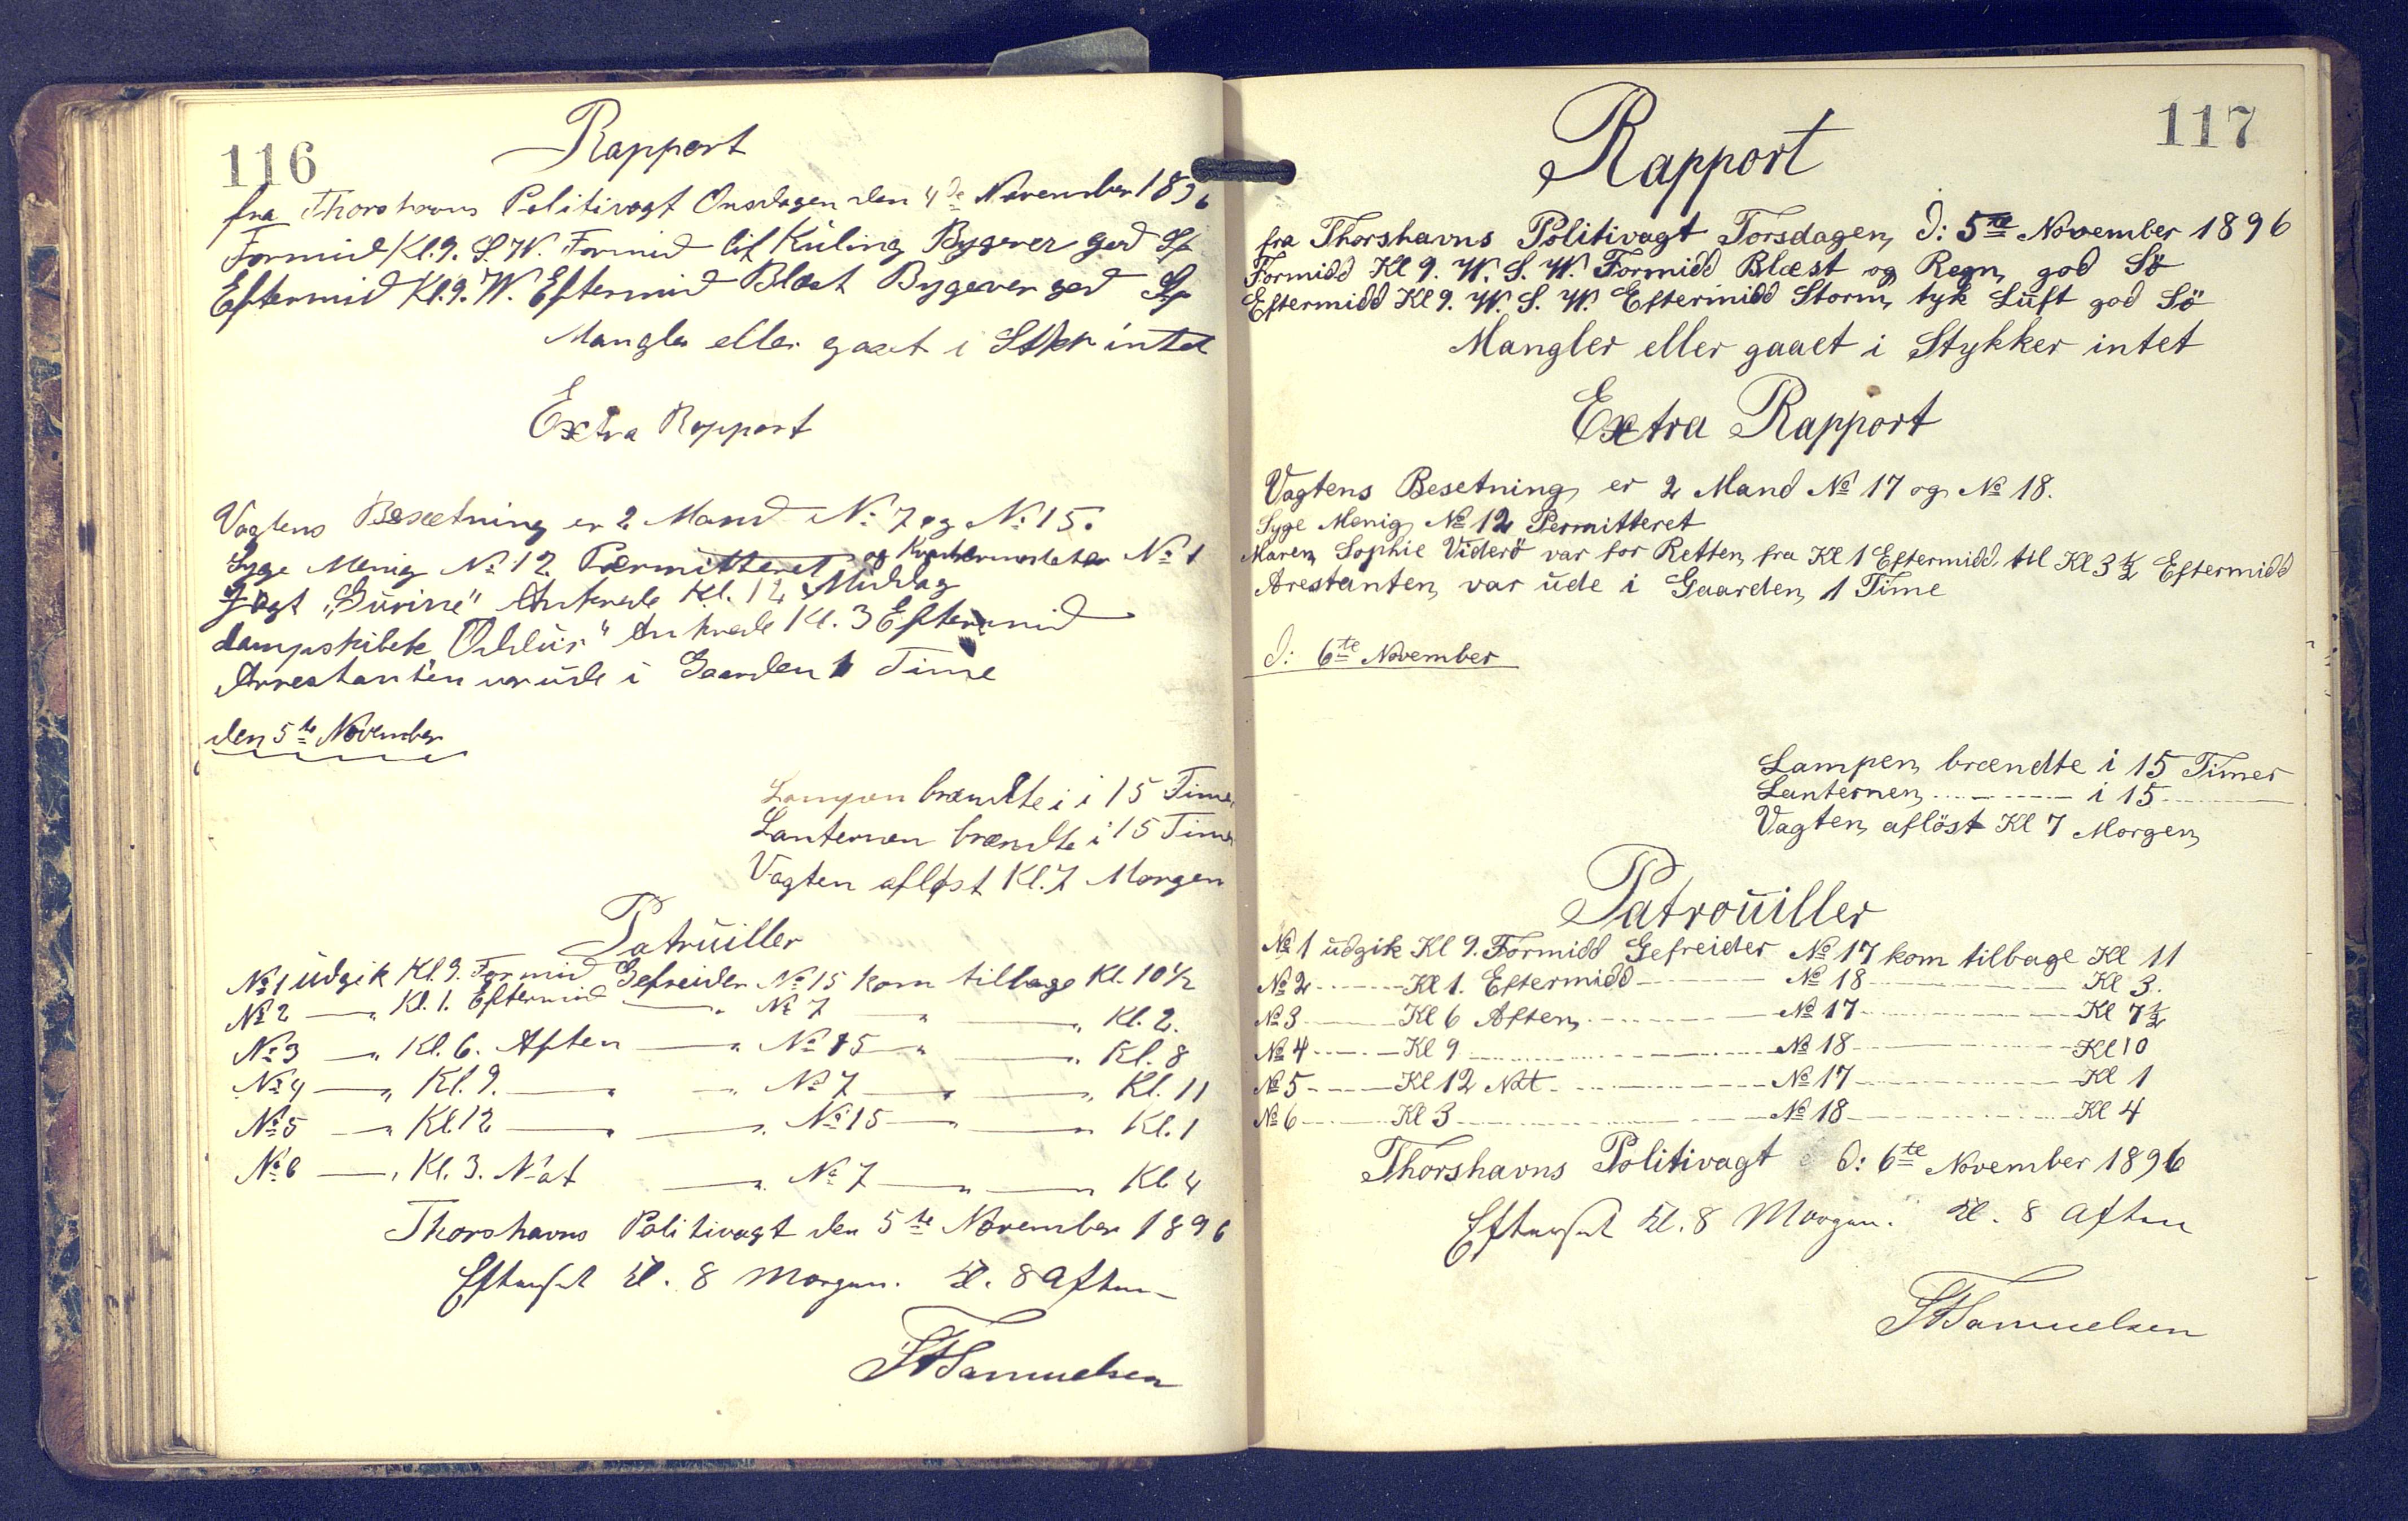 116
Rapport
fra Thorshavns Politivagt Onsdagen den 4de November 1896
Formid Kl. 9. S. W. Formid lit Küling Bygever god Sø
Eftermid Kl. 9. W. Eftermid Blæst Bygever god Sø
Mangler eller gaaet i Stkr intet
Extra Rapport
Vagtens Besætning er 2 Mand No 7 og No 15.
Syge Menig No 12 Permitteret og No 1
Jagt „Gurine" Ankrede Kl. 12 Middag
dampskibete Ankrede Kl. 3 Eftermid
Arrestanten var ude i Gaarden 1 Time
den 5te November
Lampen brændte i i 15 Timer
Lanternen brændte i 15 Timer
Vagten afløst Kl. 7 Morgen
Patruiller
No 1 udgik Kl. 9. Formid Gefreider No 15 kom tilbage Kl. 10½
No 2 —„ Kl. 1. Eftermid —„ No 7 „ —„ Kl. 2.
No 3 —„ Kl. 6. Aften —„ No 15 —„ —„ Kl. 8
No 4 —„ Kl. 9. —„ „ No 7 —„ —„ Kl. 11
No 5 —„ Kl. 12 —„ —„ No 15 —„ —„ Kl. 1
No 6 —„ Kl. 3. Nat —„ No 7 —„ —„ Kl. 4
Thorshavns Politivagt den 5te November 1896
Efterset Kl. 8 Morgen. Kl. 8 Aften
Samuelsen
117
Rapport
fra Thorshavns Politivagt Torsdagen, d: 5te November 1896
Formidd Kl 9. W. S. W. Formidd Blæst og Regn, god Sö
Eftermidd Kl 9. W. S. W. Eftermidd Storm, tyk Luft god Sö
Mangler eller gaaet i Stykker intet
Extra Rapport
Vagtens Besetning er 2 Mand No 17 og No 18.
Syge Menig No 12 Permitteret
Maren Sophie Viderö var for Retten, fra Kl 1 Eftermidd. til Kl 3½ Eftermidd
Arestanten, var ude i Gaarden, 1 Time
d: 6te November
Lampen, brændte i 15 Timer
Lanternen, ------ i 15 ------
Vagten, aflöst Kl 7 Morgen,
Patrouiller
No 1 udgik Kl 9. Formidd Gefreider No 17 kom tilbage Kl 11
No 2 ------ Kl 1. Eftermidd ------ No 18 ------ Kl 3.
No 3 ------ Kl 6 Aften, ------ No 17 ------ Kl 7½
No 4 ------ Kl 9 ------ No 18 ------ Kl 10
No 5 ------ Kl 12 Nat ------ No 17 ------ Kl 1
No 6 ------ Kl 3 ------ No 18 ------ Kl 4
Thorshavns Politivagt d: 6te November 1896
Efterset Kl. 8 Morgen. Kl. 8 Aften
Samuelsen